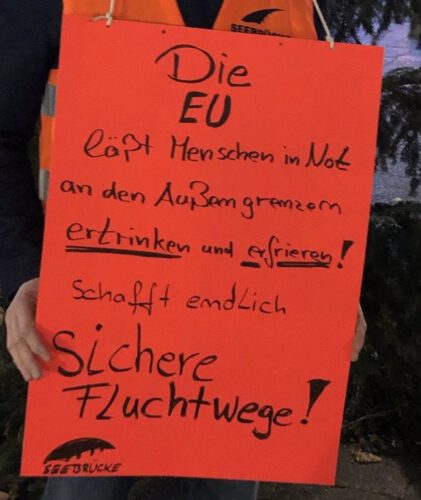 SEEBRÜCKE
Die
EU
läßt Menschen in Not
an den Außengrenzen
ertrinken und erfrieren!
Schafft endlich
Sichere
Fluchtwege!
SEEBRÜCKE